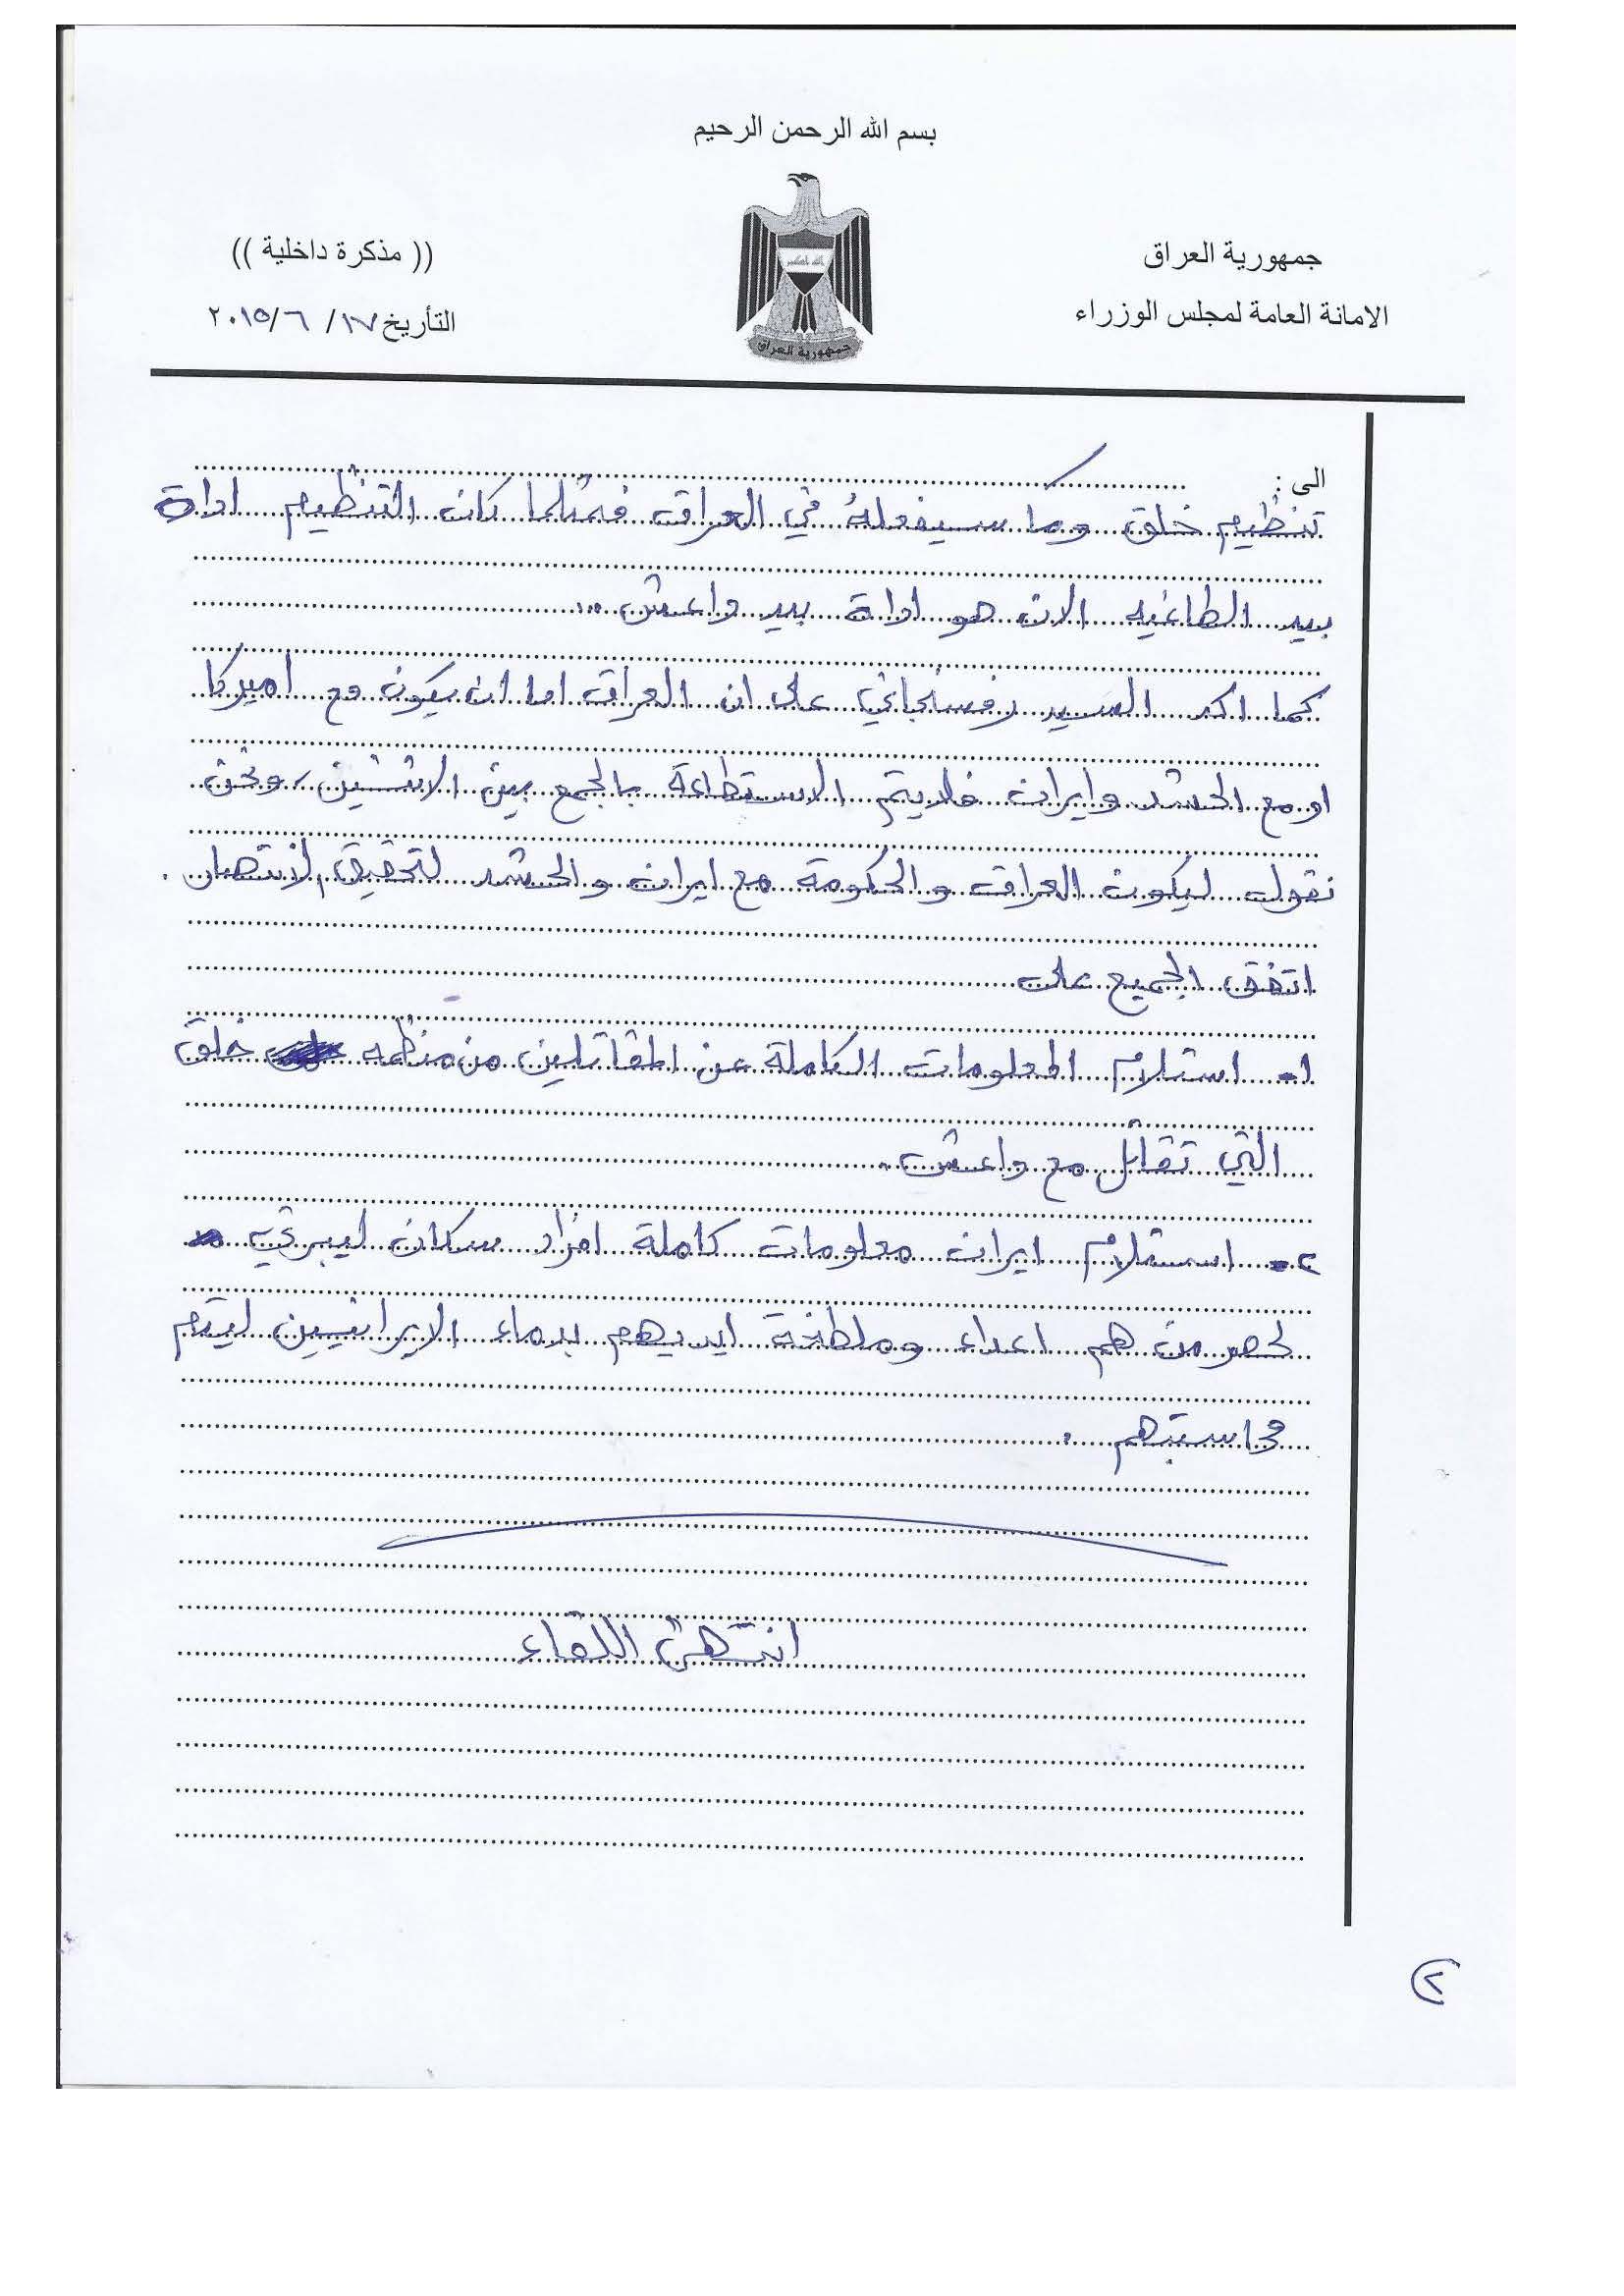 بسم الله الرحمن الرحيم
جمهورية العراق
(( مذكرة داخلية ))
الامانة العامة لمجلس الوزراء
التأريخ ١٧/ ٦/ ٢٠١٥
جمهورية العراق
الى :
تنظيم خلق وما سيفعلهُ في العراق فمثلما كان التنظيم اداة
بيد الطاغيه الان هو اداة بيد داعش ...
كما اكد السيد رفسنجاني على ان العراق اما ان يكون مع اميركا
او مع الحشد وايران فلا يتم الاستطاعة بالجمع بين الاثنين ، ونحن
نقول ليكون العراق والحكومة مع ايران والحشد لتحقيق الانتصار .
اتفق الجميع على
١- استلام المعلومات الكاملة عن المقاتلين من منظمه خلق
التي تقاتل مع داعش .
٢- استلام ايران معلومات كاملة افراد سكان ليبرتي
لحصر من هم اعداء وملطخة ايديهم بدماء الايرانيين ليتم
محاسبتهم .
انتهى اللقاء
٢